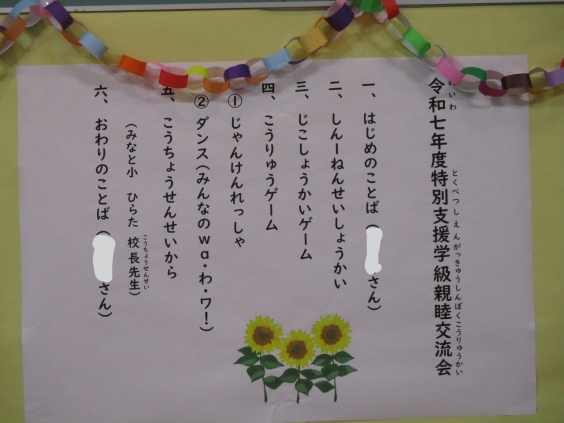 令和七年度特別支援学級親睦交流会
一、はじめのことば（　　さん）
二、しんーねんせいしょうかい
三、じこしょうかいゲーム
四、こうりゅうゲーム
① じゃんけんれっしゃ
② ダンス（みんなのwa・わ・ワ！）
五、こうちょうせんせいから
（みなと小　ひらた　校長先生）
六、おわりのことば（　　さん）